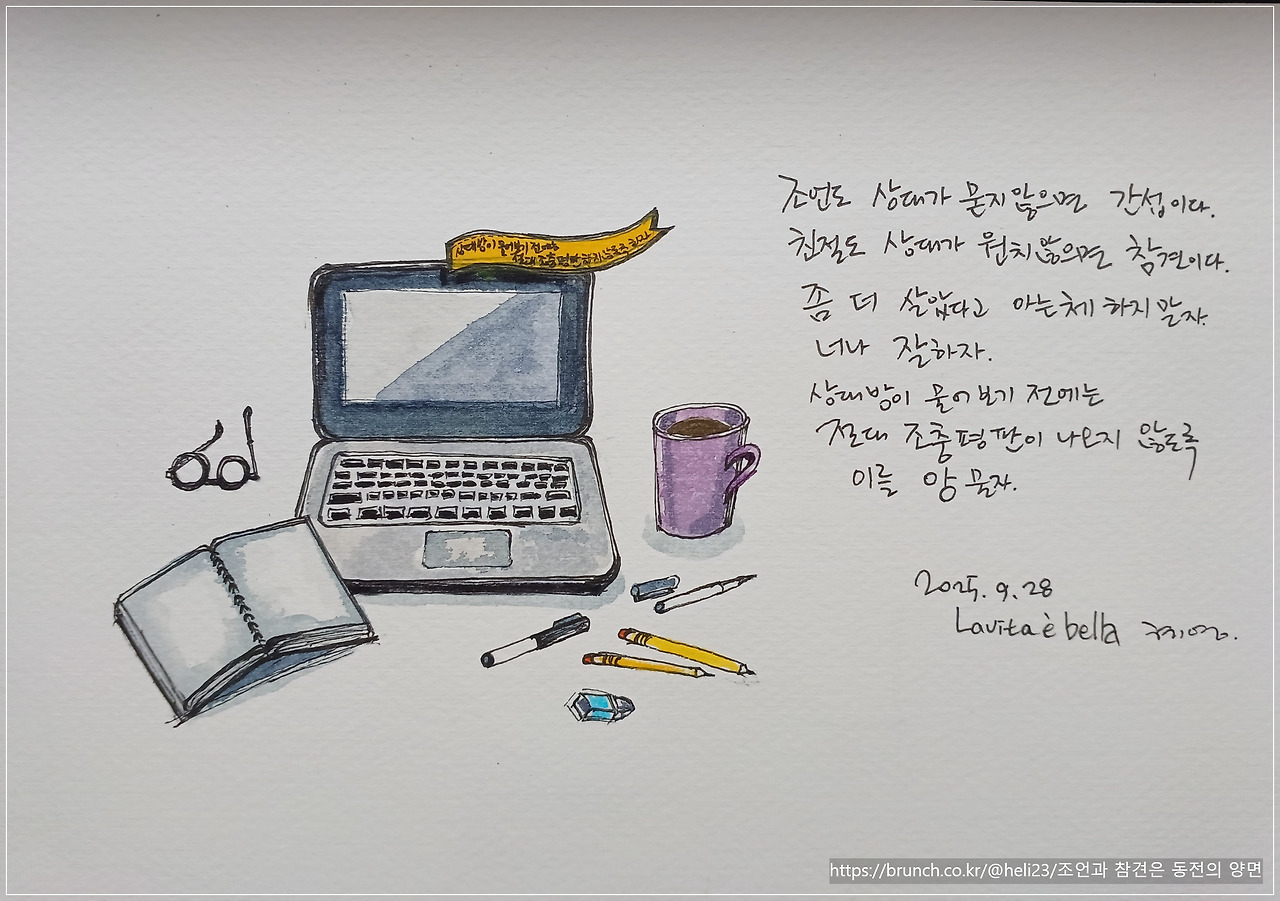 상대방이 물어보기 전에는
절대 조충평판 하지 않도록 하자
조언도 상대가 묻지않으면 간섭이다.
친절도 상대가 원치않으면 참견이다.
좀 더 살았다고 아는체 하지말자.
너나 잘하자.
상대방이 물어보기 전에는
절대 조충평판이 나오지 않도록
이를 앙 물자.
2025. 9. 28
La vita è bella
https://brunch.co.kr/@heli23/조언과 참견은 동전의 양면